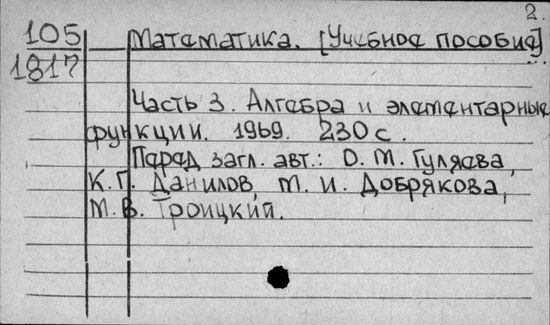 2.
105 Математика. [Учебное пособие]
1817
Часть 3. Алгебра и элементарные
функции. 1969. 230 с.
Перед загл. авт.: О. М. Гуляева,
К. Г. Данилов, М. И. Добрякова,
М. В. Троицкий.